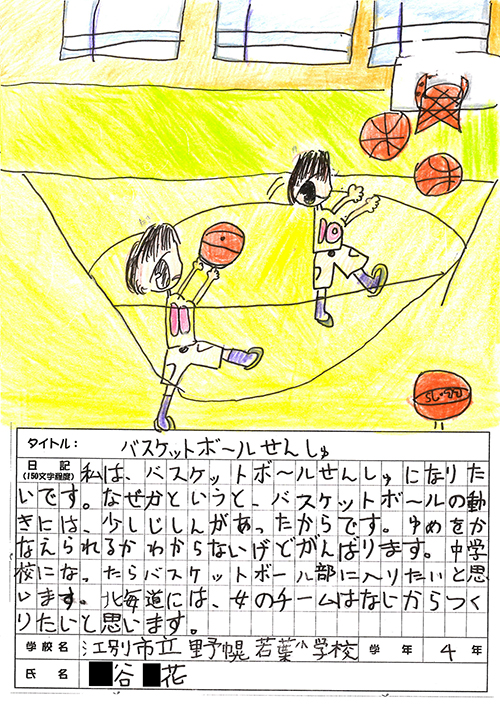 10
11
SL-75
タイトル: バスケットボールせんしゅ
日記 (150文字程度) 私は、バスケットボールせんしゅになりた
いです。なぜかというと、バスケットボールの動
きには、少しじしんがあったからです。ゆめをか
なえられるかわからないけどがんばります。中学
校になったらバスケットボール部に入りたいと思
います。北海道には、女のチームはないからつく
りたいと思います。
学校名 江別市立野幌若葉小学校 学年 4年
氏名 谷 花